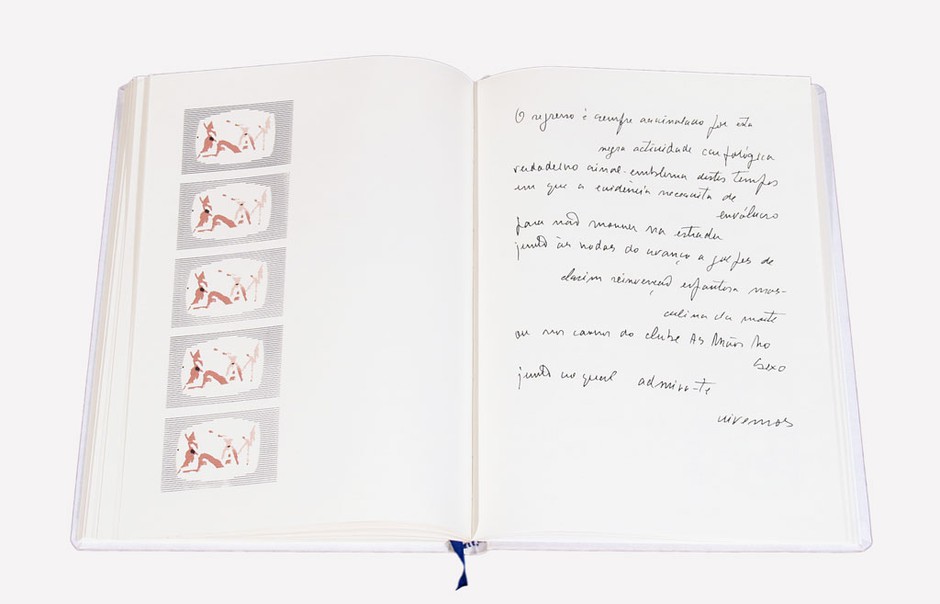 O regresso é sempre assinalado por esta
negra actividade
verdadeiro sinal-emblema destes tempos
em que a evidência necessita de
invólucro
para não morrer na estrada
junto às rodas do avanço a golpes de
clarim reinvenção infantora mas-
culina da morte
ou nos carros do clube As Mãos No
Sexo
junto ao qual admira-te
vivemos